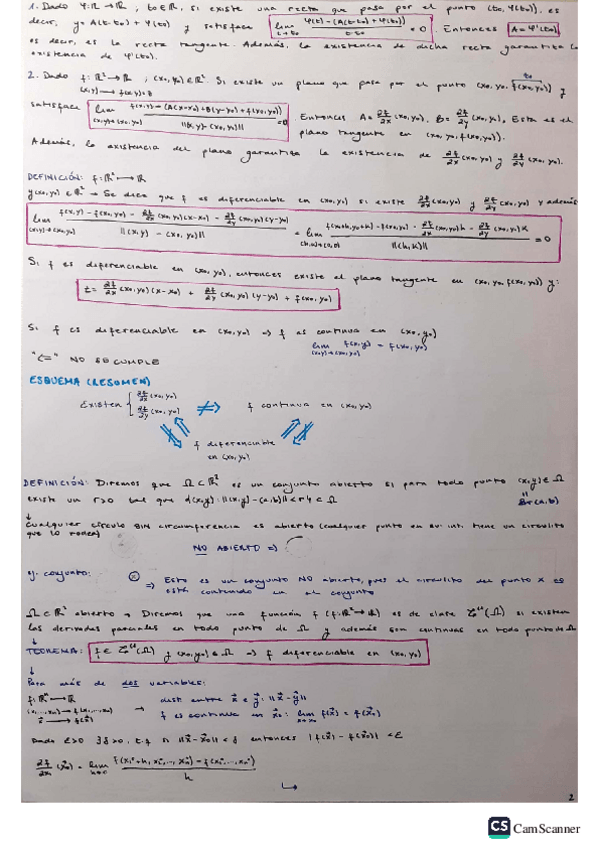 1. Dado φ:ℝ→ℝ, t₀∈ℝ, si existe una recta que pasa por el punto (t₀, φ(t₀)), es
decir, y= A(t-t₀) + φ(t₀) y satisface lim t→t₀ φ(t) - (A(t-t₀) + φ(t₀)) / t-t₀ = 0. Entonces A = φ'(t₀)
es decir, es la recta tangente. Además, la existencia de dicha recta garantiza la
existencia de φ'(t₀).
2. Dado f: ℝ²→ℝ ; (x₀,y₀)∈ℝ². Si existe un plano que pasa por el punto (x₀, y₀, f(x₀,y₀)) y
satisface lim (x,y)→(x₀,y₀) f(x,y) - (A(x-x₀) + B(y-y₀) + f(x₀,y₀)) / ||(x,y) - (x₀,y₀)|| = 0. Entonces A = ∂f/∂x (x₀,y₀), B = ∂f/∂y (x₀,y₀), Este es el
plano tangente en (x₀, y₀, f(x₀,y₀)).
Además, la existencia del plano garantiza la existencia de ∂f/∂x (x₀,y₀) y ∂f/∂y (x₀,y₀).
DEFINICIÓN: f: ℝ²→ℝ
y (x₀,y₀)∈ℝ² → Se dice que f es diferenciable en (x₀,y₀) si existe ∂f/∂x (x₀,y₀) y ∂f/∂y (x₀,y₀) y además
lim (x,y)→(x₀,y₀) f(x,y) - f(x₀,y₀) - ∂f/∂x (x₀,y₀)(x-x₀) - ∂f/∂y (x₀,y₀)(y-y₀) / ||(x,y) - (x₀,y₀)|| = lim (h,k)→(0,0) f(x₀+h,y₀+k) - f(x₀,y₀) - ∂f/∂x (x₀,y₀)h - ∂f/∂y (x₀,y₀)k / ||(h,k)|| = 0
Si f es diferenciable en (x₀,y₀), entonces existe el plano tangente en (x₀, y₀, f(x₀,y₀)) y:
z = ∂f/∂x (x₀,y₀)(x-x₀) + ∂f/∂y (x₀,y₀)(y-y₀) + f(x₀,y₀)
Si f es diferenciable en (x₀,y₀) ⇒ f es continua en (x₀,y₀)
lim (x,y)→(x₀,y₀) f(x,y) = f(x₀,y₀)
"⇐" NO SE CUMPLE
ESQUEMA (RESUMEN)
Existen { ∂f/∂x (x₀,y₀) ∂f/∂y (x₀,y₀) ⇏ f continua en (x₀,y₀)
f diferenciable
en (x₀,y₀)
DEFINICIÓN: Diremos que Ω⊂ℝ² es un conjunto abierto si para todo punto (x,y)∈Ω
existe un r>0 tal que {(x,y): ||(x,y)-(a,b)||<r} ⊂ Ω
Br(a,b)
Cualquier círculo SIN circunferencia es abierto (cualquier punto en su int. tiene un circulito
que lo rodea)
NO ABIERTO ⇒
ej. conjunto: x ⇒ Esto es un conjunto NO abierto, pues el circulito del punto x no
está contenido en el conjunto
Ω⊂ℝ² abierto → Diremos que una función f (f:ℝ²→ℝ) es de clase (Ω) si existen
las derivadas parciales en todo punto de Ω y además son continuas en todo punto de Ω
TEOREMA: f∈ (Ω) y (x₀,y₀)∈Ω ⇒ f diferenciable en (x₀,y₀)
Para más de dos variables:
→ dist entre x⃗ e y⃗: ||x⃗-y⃗||
x⃗ → f(x⃗) f es continua en x⃗₀: lim f(x⃗) = f(x⃗₀)
Dado ε>0 ∃δ>0, t.q si ||x⃗-x⃗₀||<δ entonces |f(x⃗) - f(x⃗₀)|<ε
2
CS CamScanner